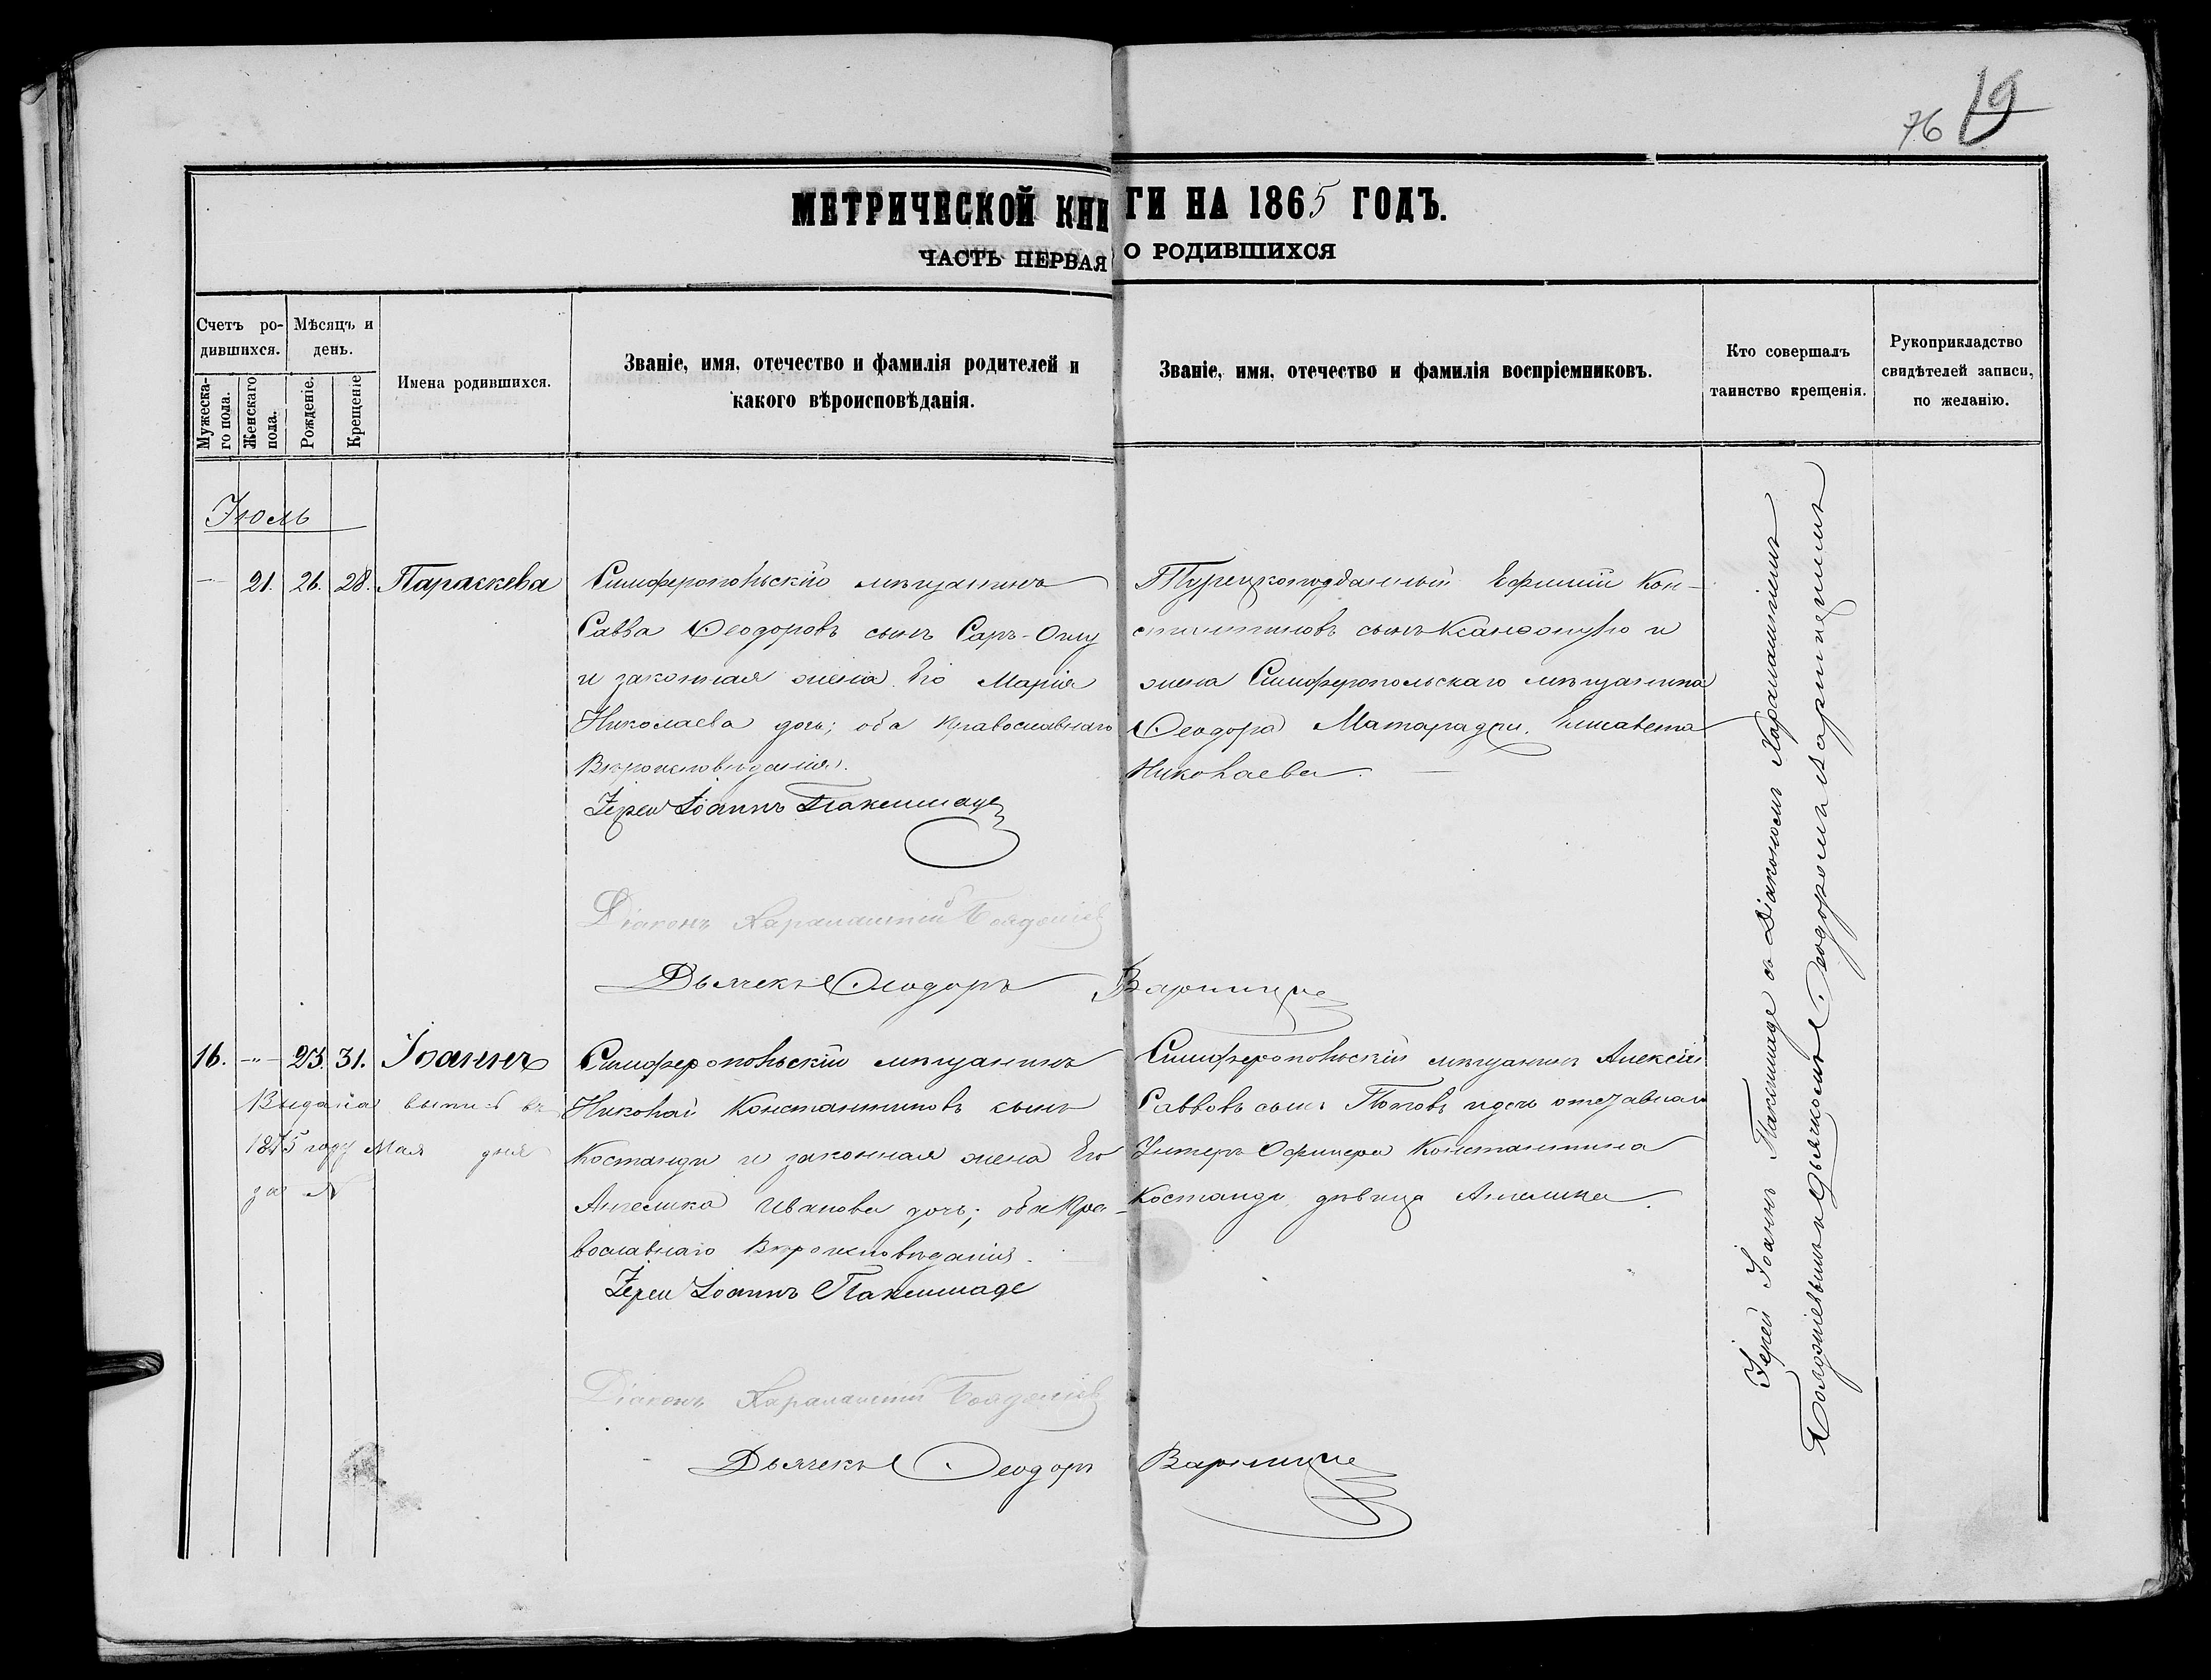 76 19
МЕТРИЧЕСКОЙ КНИГИ НА 1865 ГОДЪ.
ЧАСТЬ ПЕРВАЯ О РОДИВШИХСЯ
Счетъ ро-
дившихся.
Мужеска-
го пола.
Женскаго
пола.
Мѣсяцъ и
день.
Рожденіе.
Крещеніе
Имена родившихся.
Званіе, имя, отечество и фамилія родителей и
какого вѣроисповѣданія.
Званіе, имя, отечество и фамилія воспріемниковъ.
Кто совершалъ
таинство крещенія.
Рукоприкладство
свидѣтелей записи,
по желанію.
Іюль
— 21. 26. 28. Параскева
Симферопольскій мѣщанинъ
Савва Ѳеодоровъ сынъ Саръ-Оглу
и законная жена Его Марія
Николаева дочь; оба православнаго
Вѣроисповѣданія.
Іерей Іоаннъ Паксимаде
Діаконъ Харалампій Бояджіевъ
Дьячекъ Ѳеодоръ
Турецкоподданный Ефимій Кон-
стантиновъ сынъ и
жена Симферопольскаго мѣщанина
Ѳеодора Матараджи, Елисавета
Николаева.
16. -"- 23. 31. Іоаннъ
Выдана выпись въ
1875 году Мая дня
за №
Симферопольскій мѣщанинъ
Николай Константиновъ сынъ
Костанди и законная жена Его
Ангелика Иванова дочь; оба Пра-
вославнаго Вѣроисповѣданія.
Іерей Іоаннъ Паксимаде
Діаконъ Харалампій Бояджіевъ
Дьячекъ Ѳеодоръ
Симферопольскій мѣщанинъ Алексій
Саввовъ сынъ Поповъ и дочь отставнаго
Унтеръ Офицера Константина
Костанди дѣвица
Іерей Іоаннъ Паксимаде съ Діакономъ Харалампіемъ
Бояджіевымъ и Дьячкомъ Ѳеодоромъ